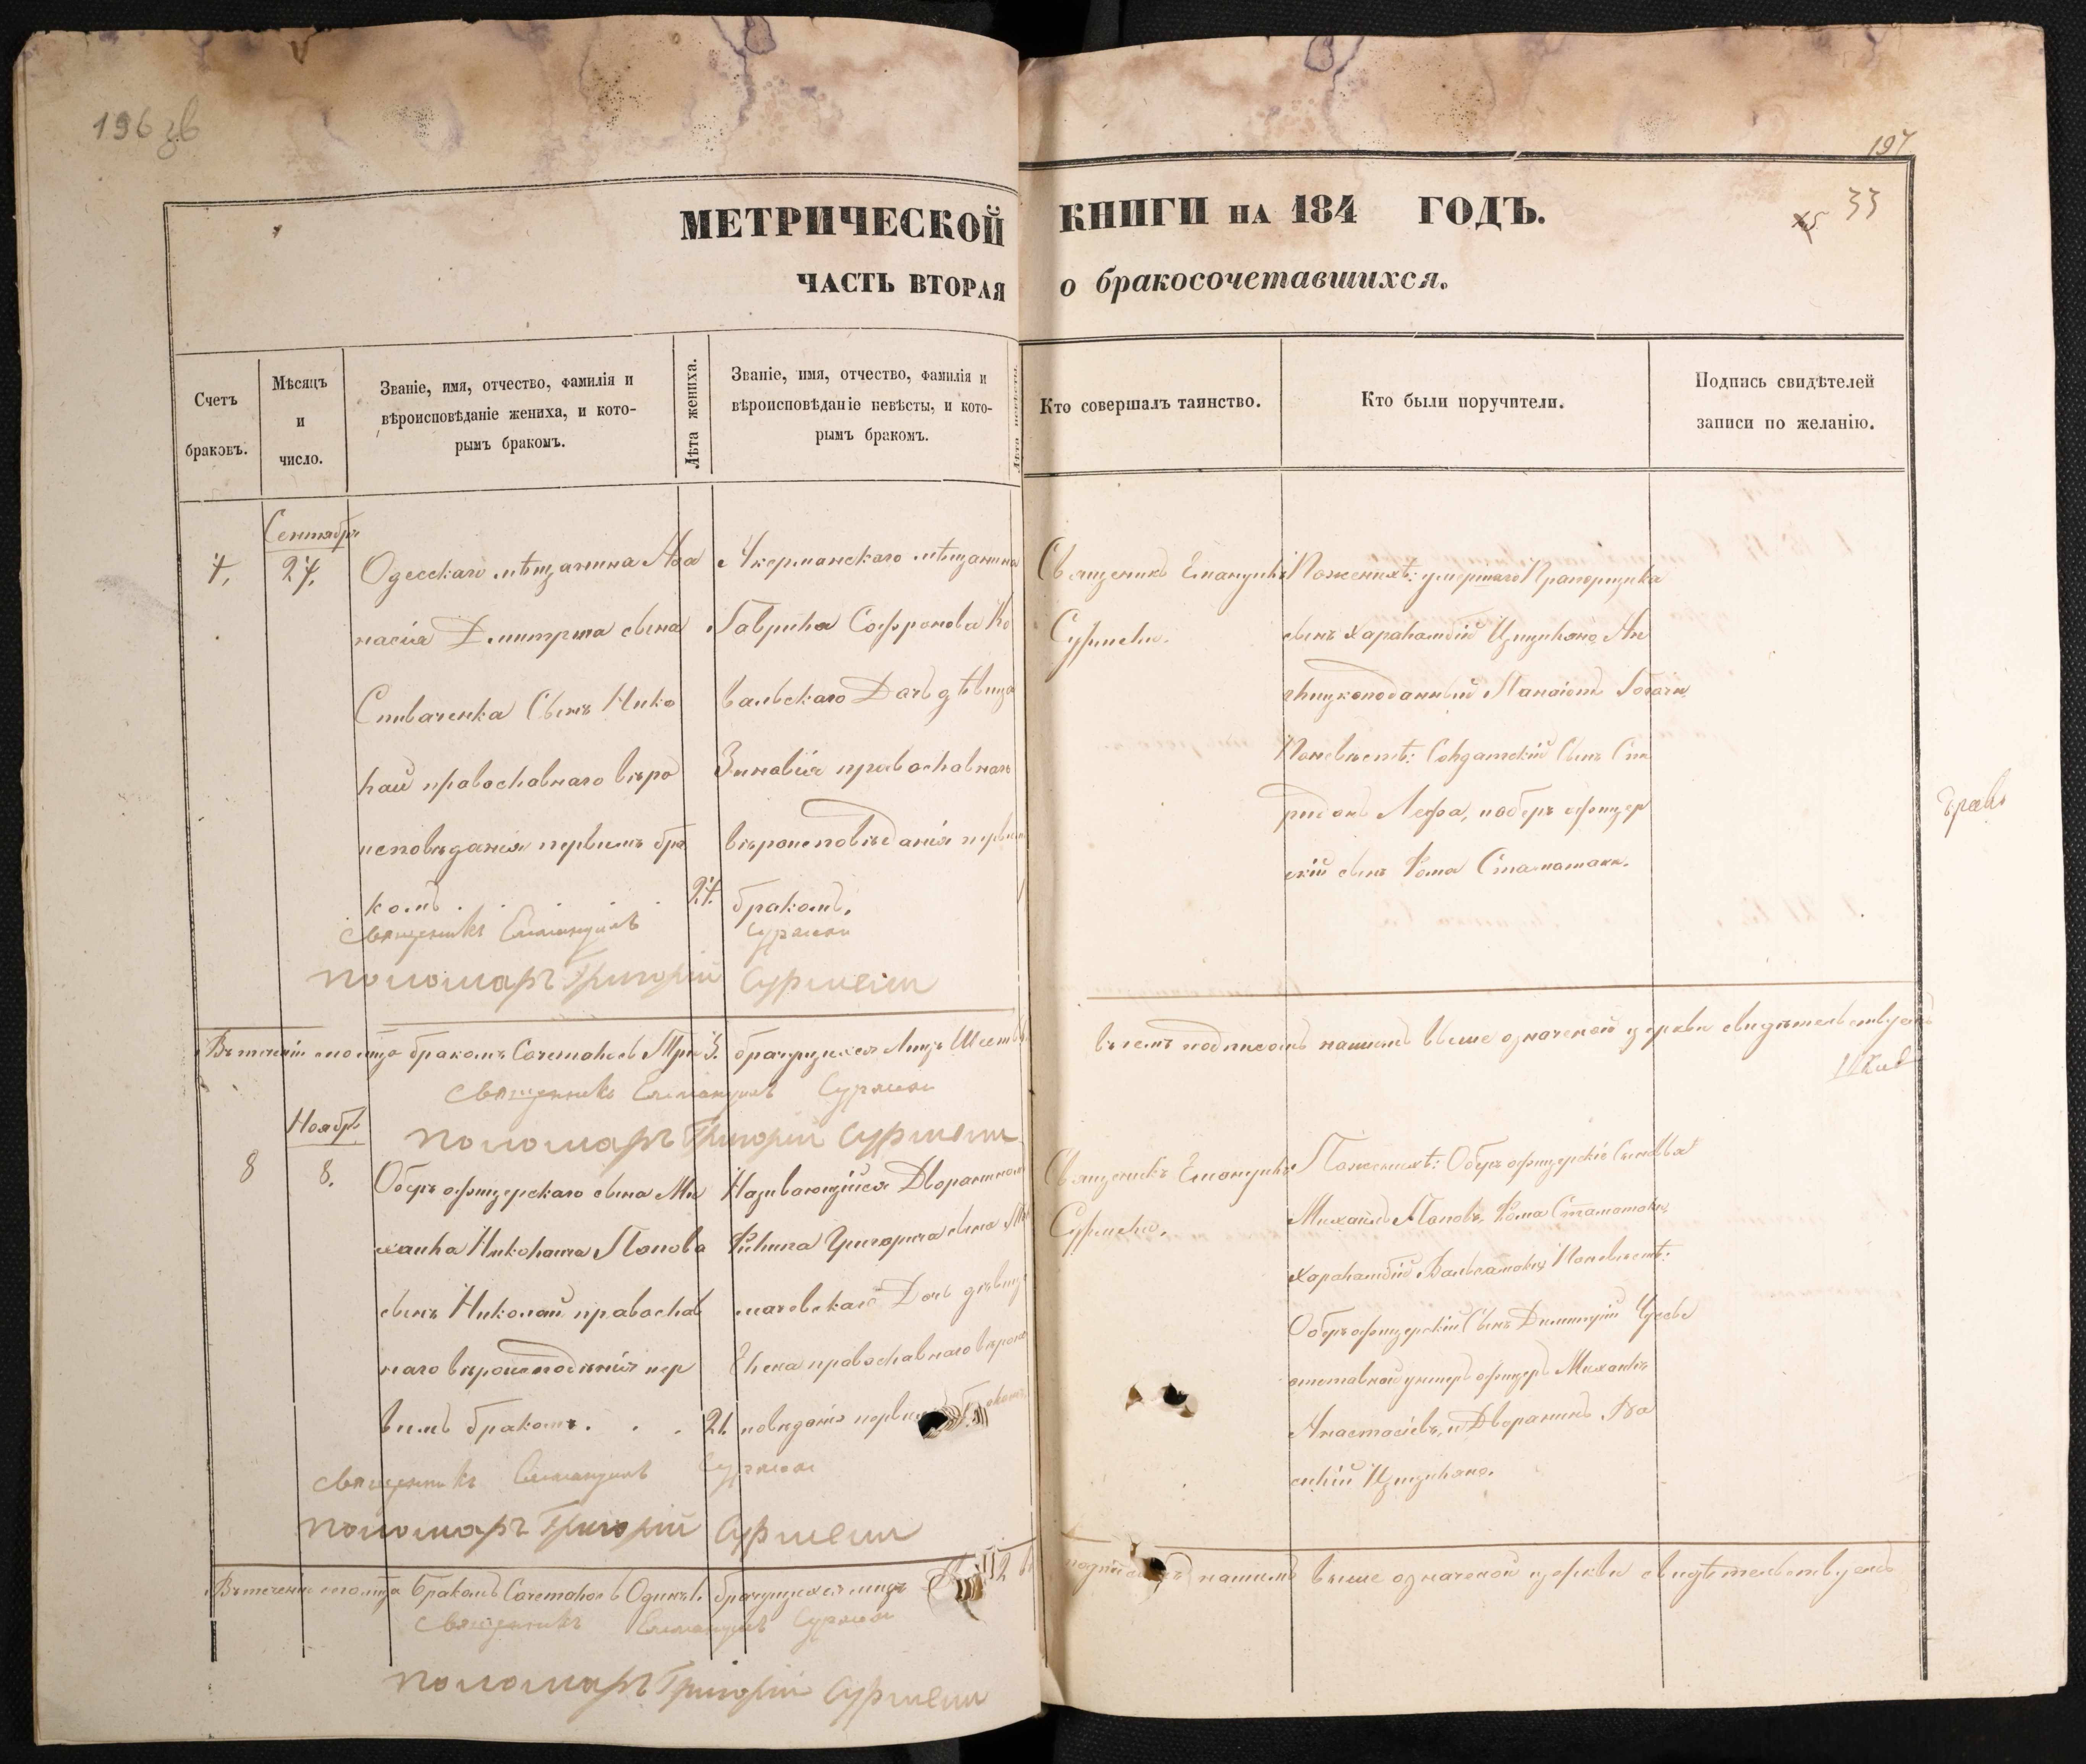 196 зв
197
33
МЕТРИЧЕСКОЙ КНИГИ НА 184 ГОДЪ.
ЧАСТЬ ВТОРАЯ о бракосочетавшихся.
Счетъ
браковъ.
Мѣсяцъ
и
число.
Званіе, имя, отчество, фамилія и
вѣроисповѣданіе жениха, и кото-
рымъ бракомъ.
Лѣта жениха.
Званіе, имя, отчество, фамилія и
вѣроисповѣданіе невѣсты, и кото-
рымъ бракомъ.
Лѣта невѣсты.
Кто совершалъ таинство.
Кто были поручители.
Подпись свидѣтелей
записи по желанію.
7.
Сентябрь
27.
Одесскаго мѣщанина Афа
насія Дмитрша сына
Спиваченка Сынъ Нико
лай православнаго вѣро
исповѣданія первымъ бра
комъ
27.
Акерманскаго мѣщанина
Гаврила Софронова Ко
вальскаго Дочь дѣвица
Зиновія православнаго
вѣроисповѣданія первым
бракомъ.
Священикъ Емануилъ
Сурмели.
По женихѣ: умершаго Прапорщика
сынъ Харалампій Цицилияно, Ан
глицкоподанный Панаіотъ
По невѣстѣ: Солдатскій Сынъ Спи
ридонъ Лефа, и оберъ офицер
скій сынъ Фома Стаматаки.
Священникъ Еммануилъ Сурмели
Пономаръ Григорій Сурмели
Въ теченіи сего м͠ца бракомъ Сочеталось Три 3. брачущихся Лицъ Шесть
въ семъ подписомъ нашимъ выше означеной церкви свидѣтельствуемъ
Священникъ Еммануилъ Сурмели
Пономаръ Григорій Сурмели
8
Ноябрь
8.
Оберъ офицерскаго сына Ми
хаила Николаича Попова
сынъ Николай православ
наго вѣроисповѣднія пер
вимъ бракомъ.
21.
Називающійся Дворанином
Филипа Григорича сына
Дочь дѣвица
Елена православнаго вѣроис
повѣданія первим бракомъ
Священикъ Емануилъ
Сурмели.
По женихѣ: Оберъ офицерскіе Сыновья
Михаилъ Поповъ, Фома Стаматаки,
Харалампій По невѣстѣ:
Оберъ офицерскій Сынъ Димитрій
отставной унтеръ офицеръ Михаилъ
Анастасіевъ, и Дворанинъ Ва
силій Цицилияно.
Священникъ Еммануилъ Сурмели
Пономаръ Григорій Сурмели
Въ теченіи сего м͠ца Бракомъ Сочеталось Одинъ 1. брачущихся лицъ 2
подписомъ нашимъ выше означеной церкви свидѣтельствуемъ
Священникъ Еммануилъ Сурмели
Пономаръ Григорій Сурмели